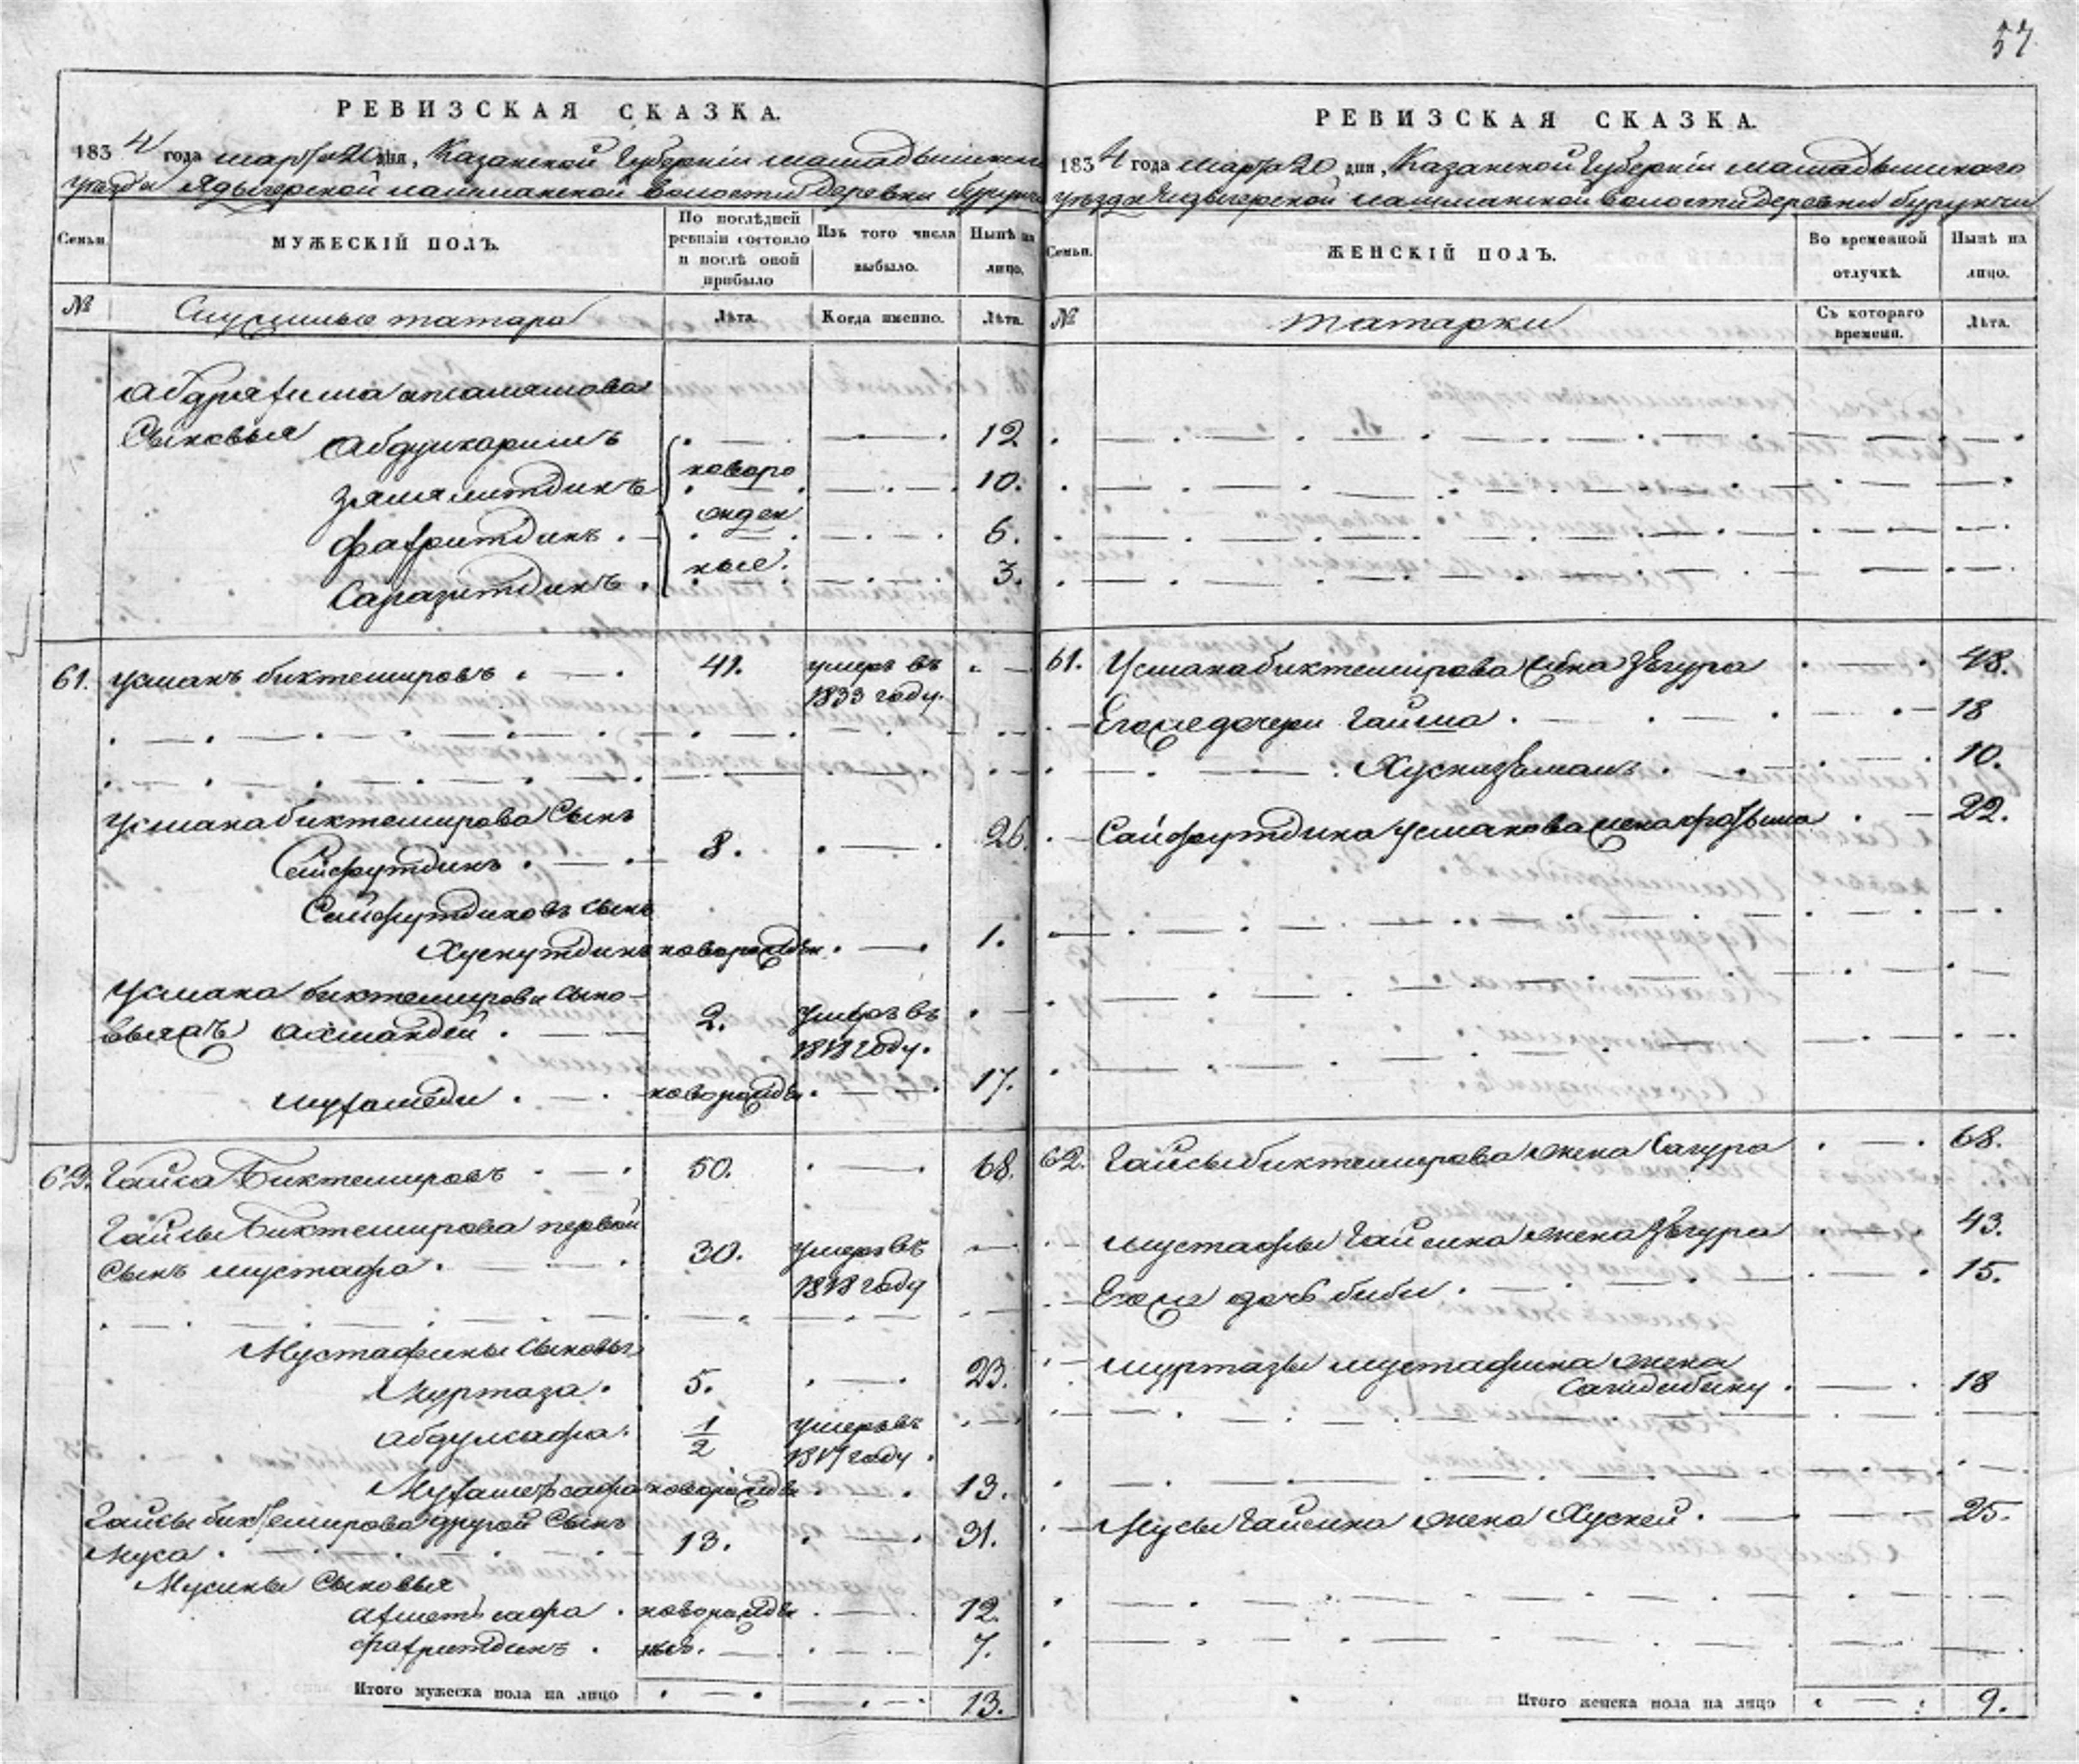 57
РЕВИЗСКАЯ СКАЗКА.
1834 года марта 20 дня, Казанской Губернии мамадышскаго
уезда Ядыгерской волости деревни бурунчи
Семьи.
МУЖЕСКІЙ ПОЛЪ.
По послѣдней ревизіи состояло и послѣ оной прибыло
Изъ того числа выбыло.
Нынѣ на лицо.
№
Служилые татара
Лѣта.
Когда именно.
Лѣта.
Сыновья Абдулкаримъ 12
новоро
10.
жден
фахритдинъ. 6.
ные.
3.
61. Усманъ биктемировъ. 41. умеръ въ
1833 году.
Усмана биктемирова Сынъ
Сейфутдинъ. 8. 26.
Сейфутдиновъ сынъ
Хуснутдинъ новорожден. 1.
Усмана биктемирова сыно-
вья 2. умеръ въ
1818 году.
новорожден. 17.
62. Гайса Биктемировъ 50. 68.
Гайсы Биктемирова первой
сынъ мустафа. 30. умеръ въ
1818 году
Мустафины сыновья
Муртаза. 5. 23.
абдулсафа. 1/2 умеръ въ
году.
новорожден 13.
Гайсы биктемирова другой сынъ
Муса. 13. 31.
Мусины Сыновья
ахметь сафа. новорожден 12.
фахритдинъ. ные. 7.
Итого мужеска пола на лицо 13.
РЕВИЗСКАЯ СКАЗКА.
1834 года марта 20 дня, Казанской Губернии мамадышскаго
уезда Ядыгерской волости деревни бурунчи
Семьи.
ЖЕНСКІЙ ПОЛЪ.
Во временной отлучкѣ.
Нынѣ на лицо.
№
татарки
Съ котораго времени.
Лѣта.
61. Усмана биктемирова жена Зягура 48.
Его же дочери Гайша. 18
Хусназамалъ. 10.
Сайфутдина Усманова жена 22.
62. Гайсы биктемирова жена Сагура 68.
мустафы Гайсина жена Зягура 43.
Его же дочь биби. 15.
муртазы мустафина жена
18
Мусы Гайсина жена Хусней. 25.
Итого женска пола на лицо 9.